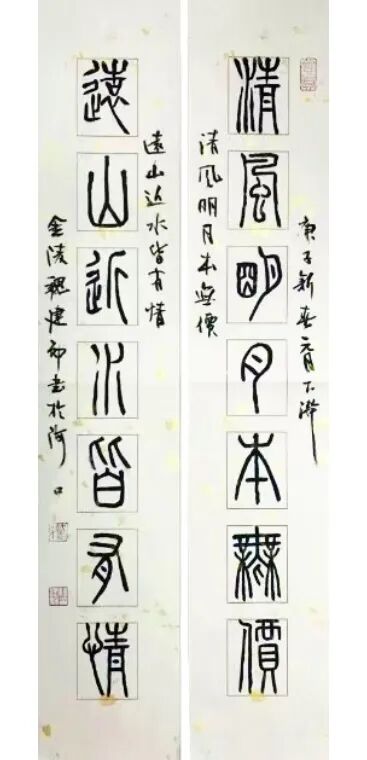 庚子新春元月下澣
清風明月本無價
清风明月本無價
遠山近水皆有情
遠山近水皆有情
金陵 建 书於